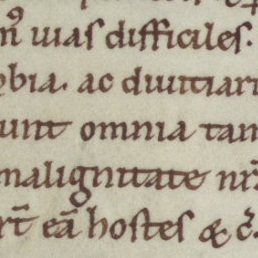 uias difficiles.
bia. ac diuitiar
unt omnia tam
malignitate nr̄
rt̄ eā hostes &